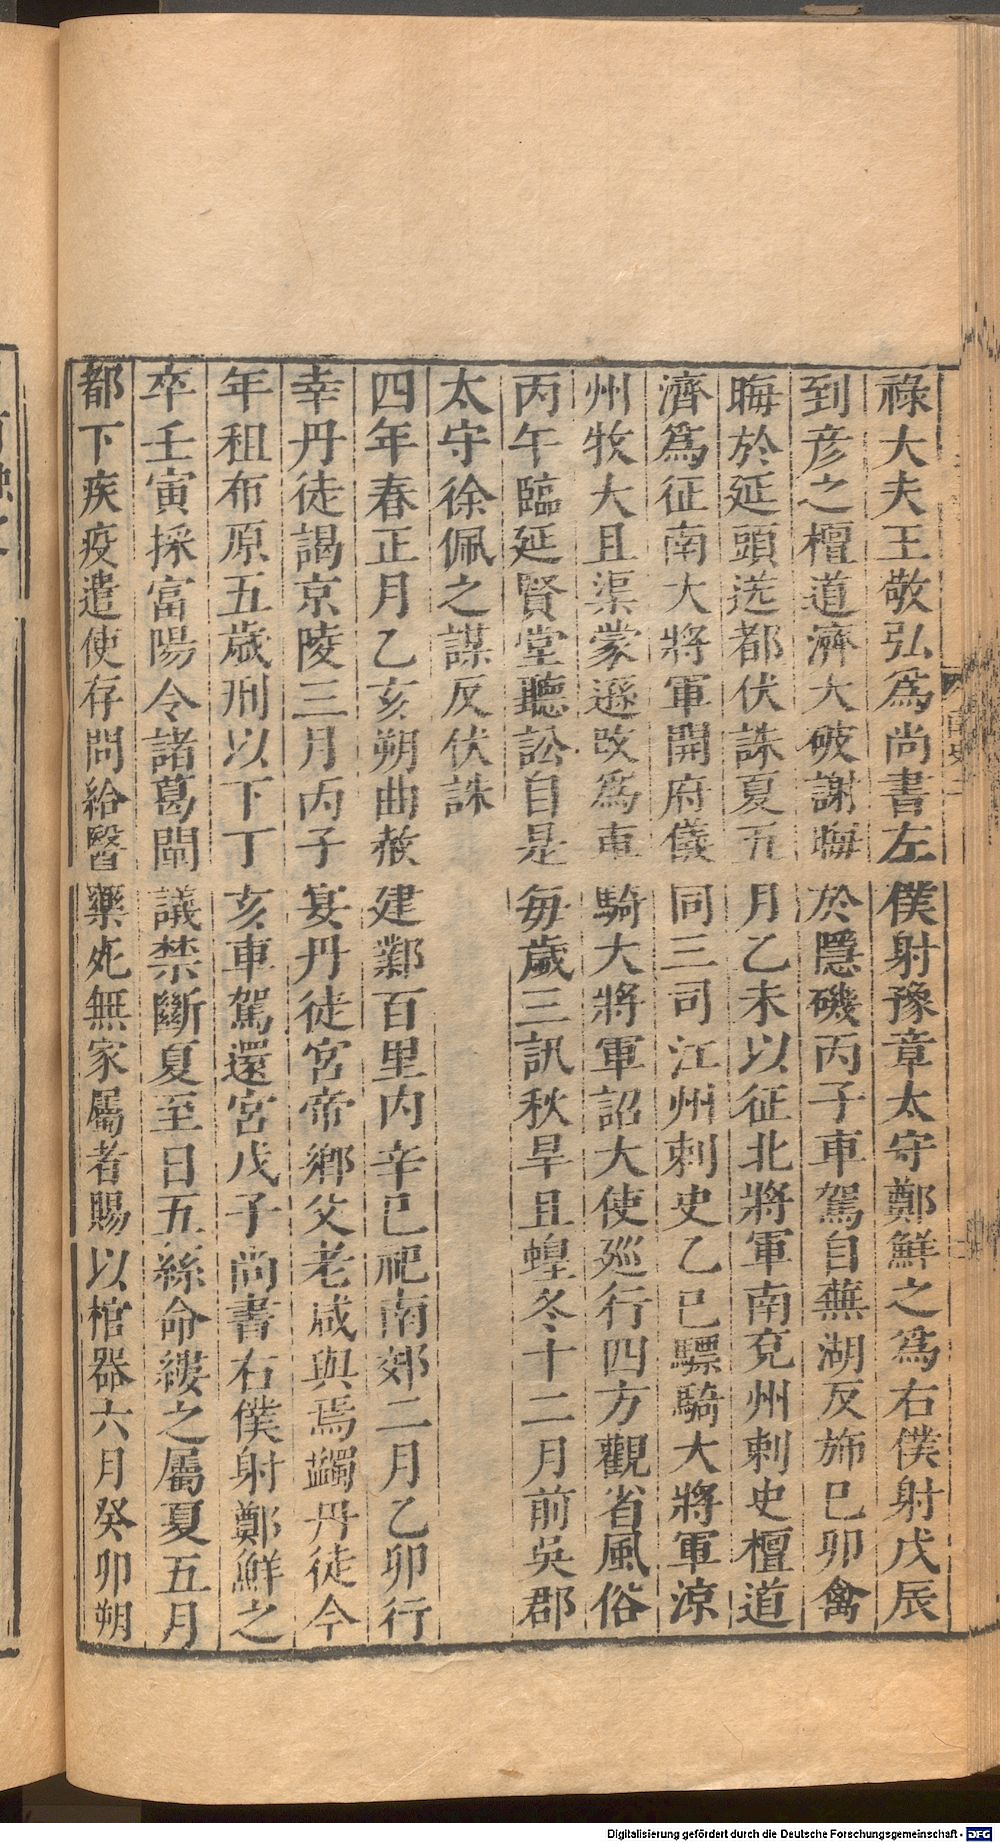 祿大夫王敬弘爲尚書左僕射豫章太守鄭鮮之爲右僕射戊辰
到彦之檀道濟大破謝晦於隱磯丙子車駕自蕪湖反斾巳卯禽
晦於延頭送都伏誅夏五月乙未以征北將軍南兗州刺史檀道
濟爲征南大將軍開府儀同三司江州刺史乙巳驃騎大將軍涼
州牧大且渠蒙遜改爲車騎大將軍詔大使廵行四方觀省風俗
丙午臨延賢堂聽訟自是每歲三訊秋旱且蝗冬十二月前吳郡
太守徐佩之謀反伏誅
四年春正月乙亥朔曲赦建鄴百里内辛巳祀南郊二月乙卯行
幸丹徒謁京陵三月丙子宴丹徒宮帝鄉父老咸與焉蠲丹徒今
年租布原五歲刑以下丁亥車駕還宮戊子尚書右僕射鄭鮮之
卒壬寅採富陽令諸葛闡議禁斷夏至日五絲命縷之屬夏五月
都下疾疫遣使存問給醫藥死無家屬者賜以棺器六月癸卯朔
Digitalisierung gefördert durch die Deutsche Forschungsgemeinschaft - DFG